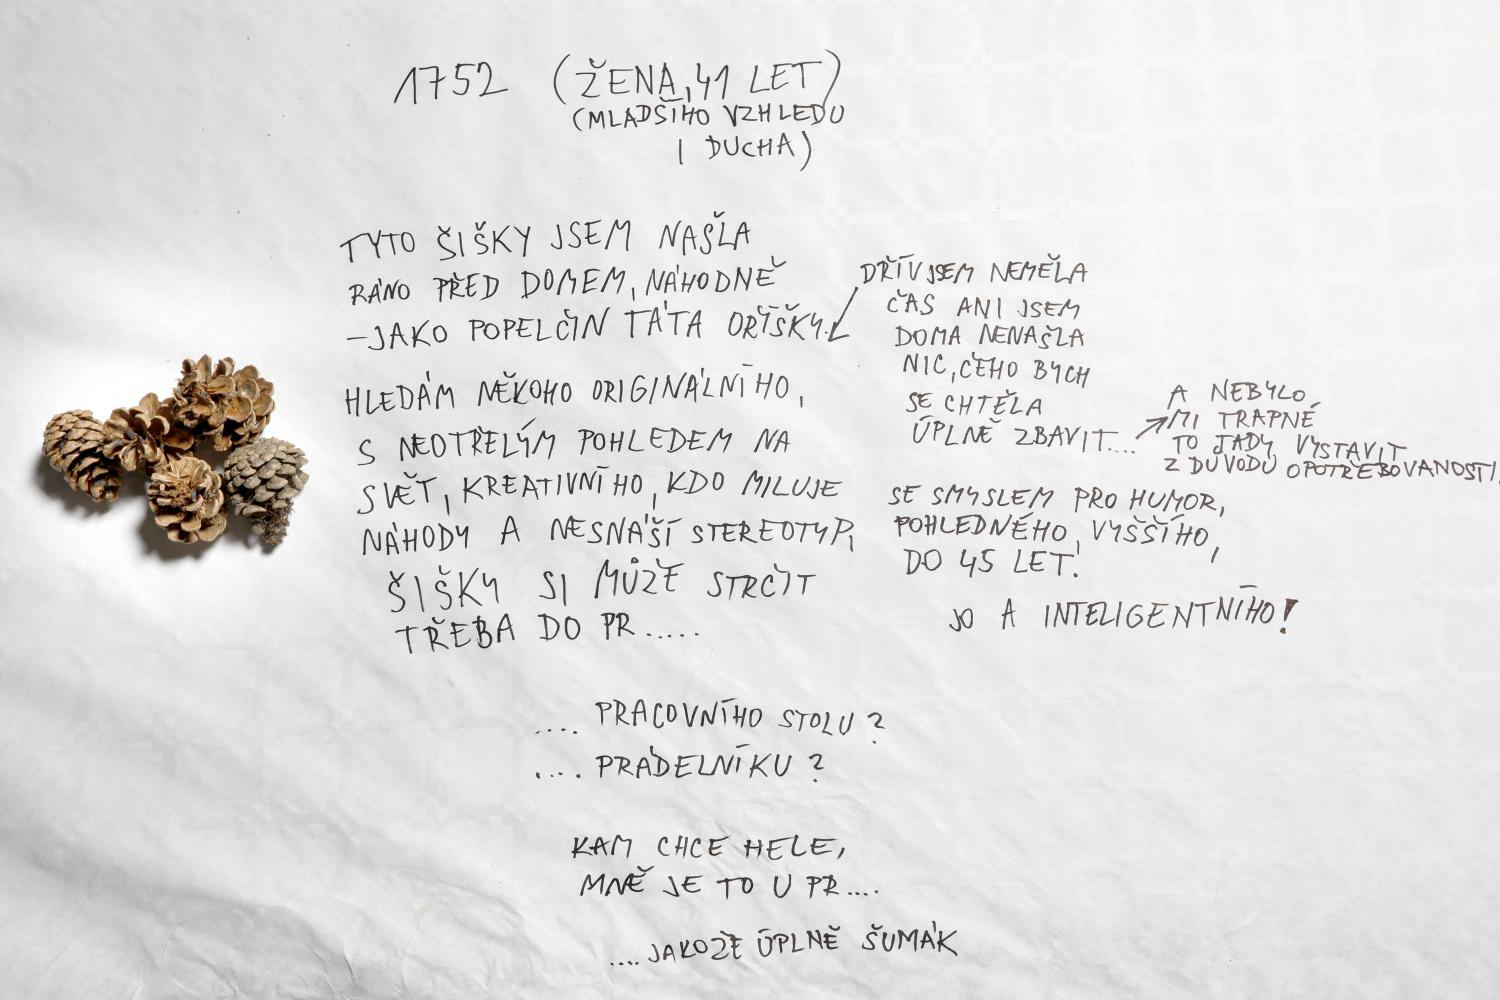 1752 (ŽENA, 41 LET)
(MLADŠÍHO VZHLEDU
I DUCHA)
TYTO ŠIŠKY JSEM NAŠLA
RÁNO PŘED DOMEM, NÁHODNĚ
—JAKO POPELČIN TÁTA OŘÍŠKY.
DŘÍV JSEM NEMĚLA
ČAS ANI JSEM
DOMA NENAŠLA
NIC, ČEHO BYCH
SE CHTĚLA
ÚPLNĚ ZBAVIT....
A NEBYLO
MI TRAPNÉ
TO TADY VYSTAVIT
Z DŮVODU OPOTŘEBOVANOSTI.
HLEDÁM NĚKOHO ORIGINÁLNÍHO,
S NEOTŘELÝM POHLEDEM NA
SVĚT, KREATIVNÍHO, KDO MILUJE
NÁHODY A NESNÁŠÍ STEREOTYP,
SE SMYSLEM PRO HUMOR,
POHLEDNÉHO, VYŠŠÍHO,
DO 45 LET.
JO A INTELIGENTNÍHO!
ŠIŠKY SI MŮŽE STRČIT
TŘEBA DO PR.....
.... PRACOVNÍHO STOLU?
.... PRÁDELNÍKU?
KAM CHCE HELE,
MNĚ JE TO U PR....
....JAKOŽE ÚPLNĚ ŠUMÁK